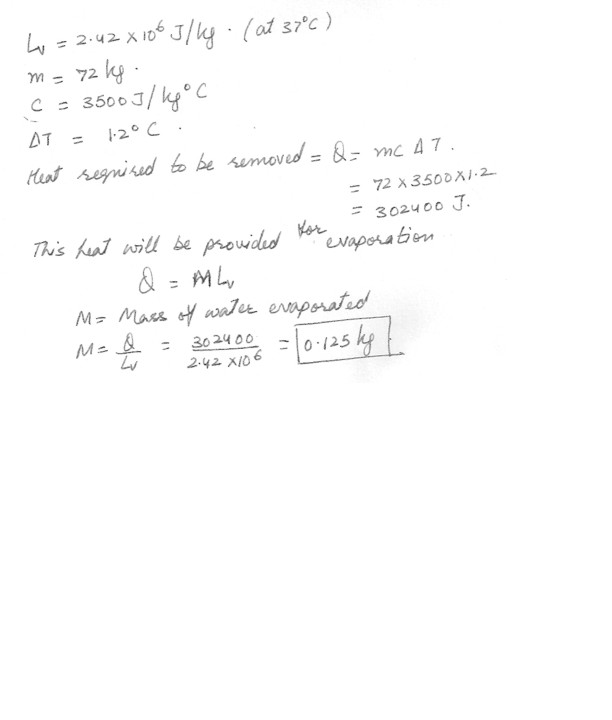 Lv = 2.42 x 10⁶ J/kg . (at 37°C)
m = 72 kg .
C = 3500 J/kg°C
ΔT = 1.2° C .
Heat required to be removed = Q = mc ΔT .
= 72 x 3500 x 1.2
= 302400 J.
This heat will be provided for evaporation
Q = MLv
M = Mass of water evaporated
M = Q/Lv = 302400/2.42 x 10⁶ = 0.125 kg